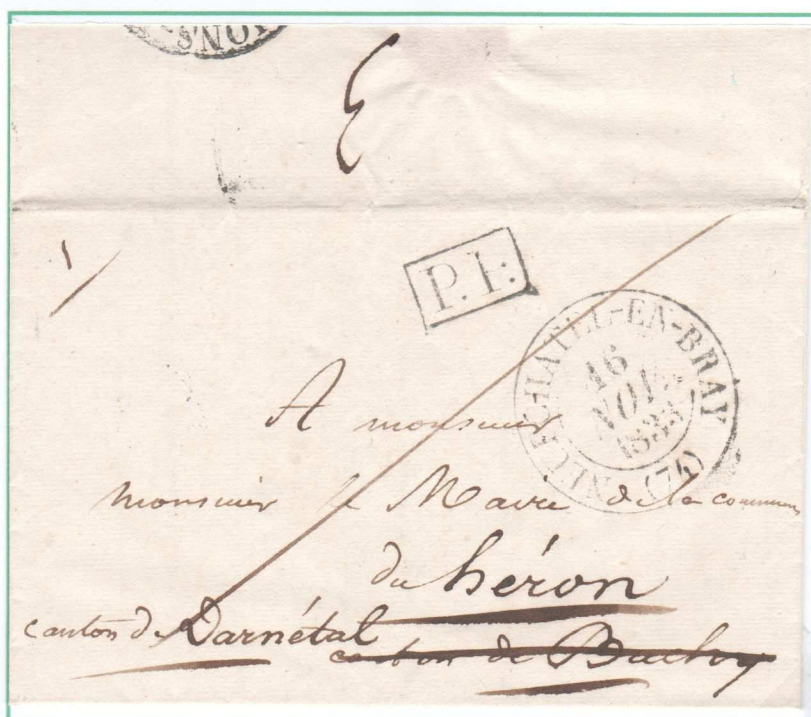 ONS
P.P.
NEUFCHATEL-EN-BRAY
16
NOV
1833
(74)
A monsieur
monsieur le Maire de la commune
du héron
canton de Darnétal
canton de Buchy